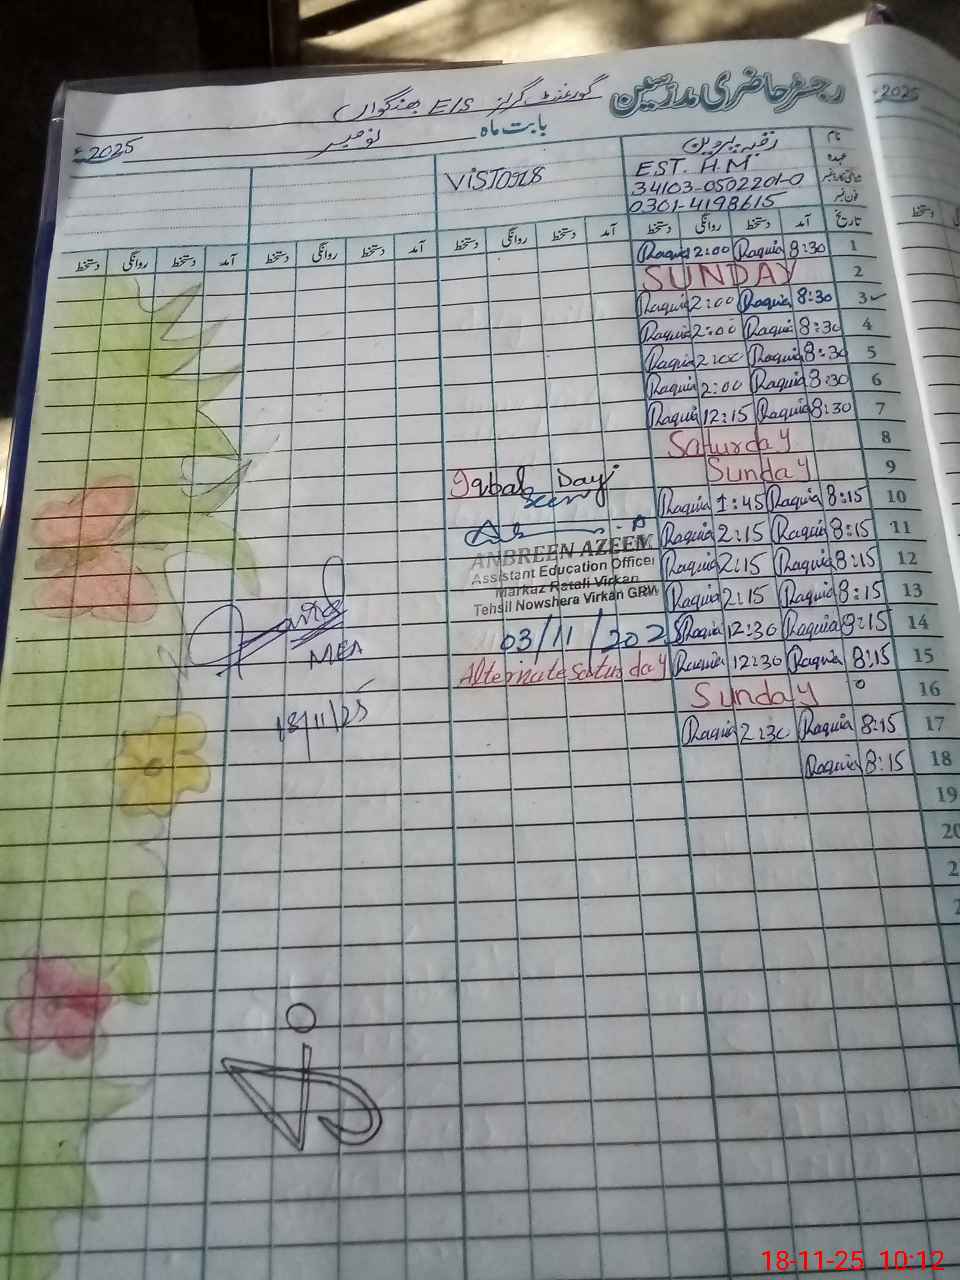 رجسٹر حاضری مدرسین گورنمنٹ گرلز E/S بھنگواں
2025ء بابت ماہ نومبر 2025ء
نام رقیہ پروین
عہدہ EST. H.M
شناختی کارڈ نمبر 34103-0502201-0
فون نمبر 0301-4198615
VISTORS
تاریخ آمد دستخط روانگی دستخط آمد دستخط روانگی دستخط آمد دستخط روانگی دستخط
1 8:30 Raquia 2:00 Raquia
2 SUNDAY
3 8:30 Raquia 2:00 Raquia
4 8:30 Raquia 2:00 Raquia
5 8:30 Raquia 2:00 Raquia
6 8:30 Raquia 2:00 Raquia
7 8:30 Raquia 12:15 Raquia
8 Saturday
9 Sunday Iqbal Day
Seen
10 8:15 Raquia 1:45 Raquia
11 8:15 Raquia 2:15 Raquia
12 8:15 Raquia 2:15 Raquia
13 8:15 Raquia 2:15 Raquia
14 8:15 Raquia 12:30 Raquia
15 8:15 Raquia 12:30 Raquia Alternate saturday
16 Sunday
17 8:15 Raquia 2:30 Raquia
18 8:15 Raquia
19
20
ANBREEN AZEEM
Assistant Education Officer
Markaz Ratali Virkan
Tehsil Nowshera Virkan GRW
03/11/2025
MEA
18/11/25
2025ء
دستخط
18-11-25 10:12